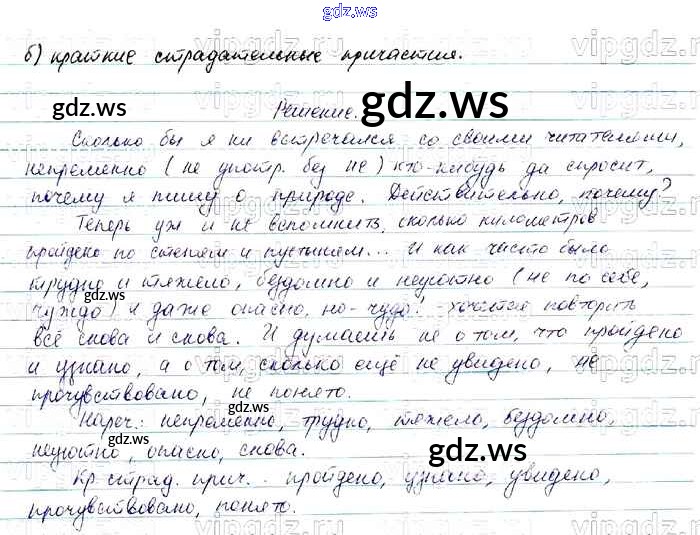 gdz.ws
б) краткие страдательные причастия.
gdz.ws
gdz.ws
Решение.
Сколько бы я ни встречался со своими читателями,
непременно (не употр. без не) кто-нибудь да спросит,
почему я пишу о природе. Действительно, почему?
Теперь уж и не вспомнить, сколько километров
пройдено по степям и пустыням... И как часто было
трудно и тяжело, бездомно и неуютно (не по себе,
gdz.ws
чуждо) и даже опасно, но - чудо! - хочется повторить
всё снова и снова. И думаешь не о том, что пройдено
и узнано, а о том, сколько ещё не увидено, не
gdz.ws
прочувствовано, не понято.
gdz.ws
Нареч.: непременно, трудно, тяжело, бездомно,
неуютно, опасно, снова.
gdz.ws
Кр. страд. прич. - пройдено, узнано, увидено,
прочувствовано, понято.
gdz.ws